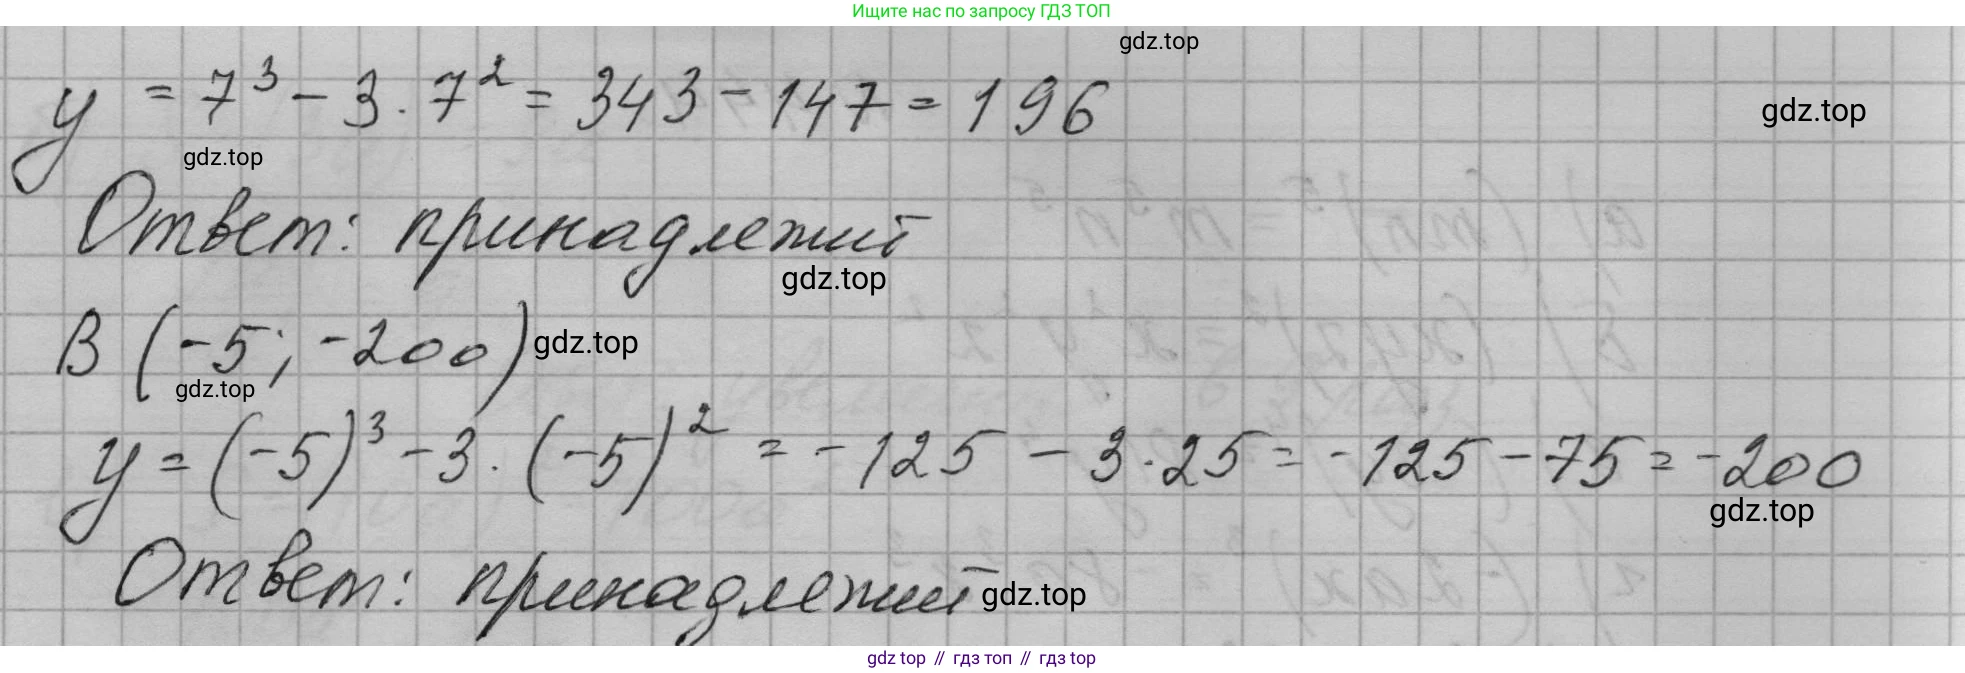 Ищите нас по запросу ГДЗ ТОП
gdz.top
y = 7³ - 3 · 7² = 343 - 147 = 196
gdz.top
gdz.top
Ответ: принадлежит
gdz.top
B (-5; -200)
gdz.top
gdz.top
y = (-5)³ - 3 · (-5)² = -125 - 3 · 25 = -125 - 75 = -200
gdz.top
Ответ: принадлежит
gdz.top
gdz top // гдз топ // гдз top